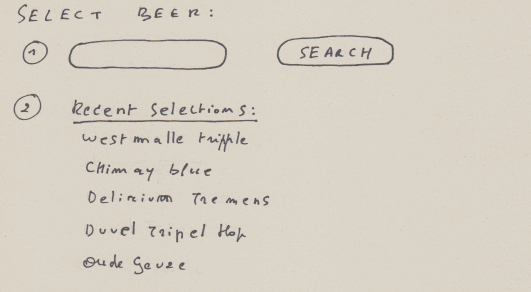 SELECT BEER:
1 SEARCH
2 Recent Selections:
Westmalle tripple
Chimay blue
Delirium Tremens
Duvel Tripel Hop
Oude Geuze